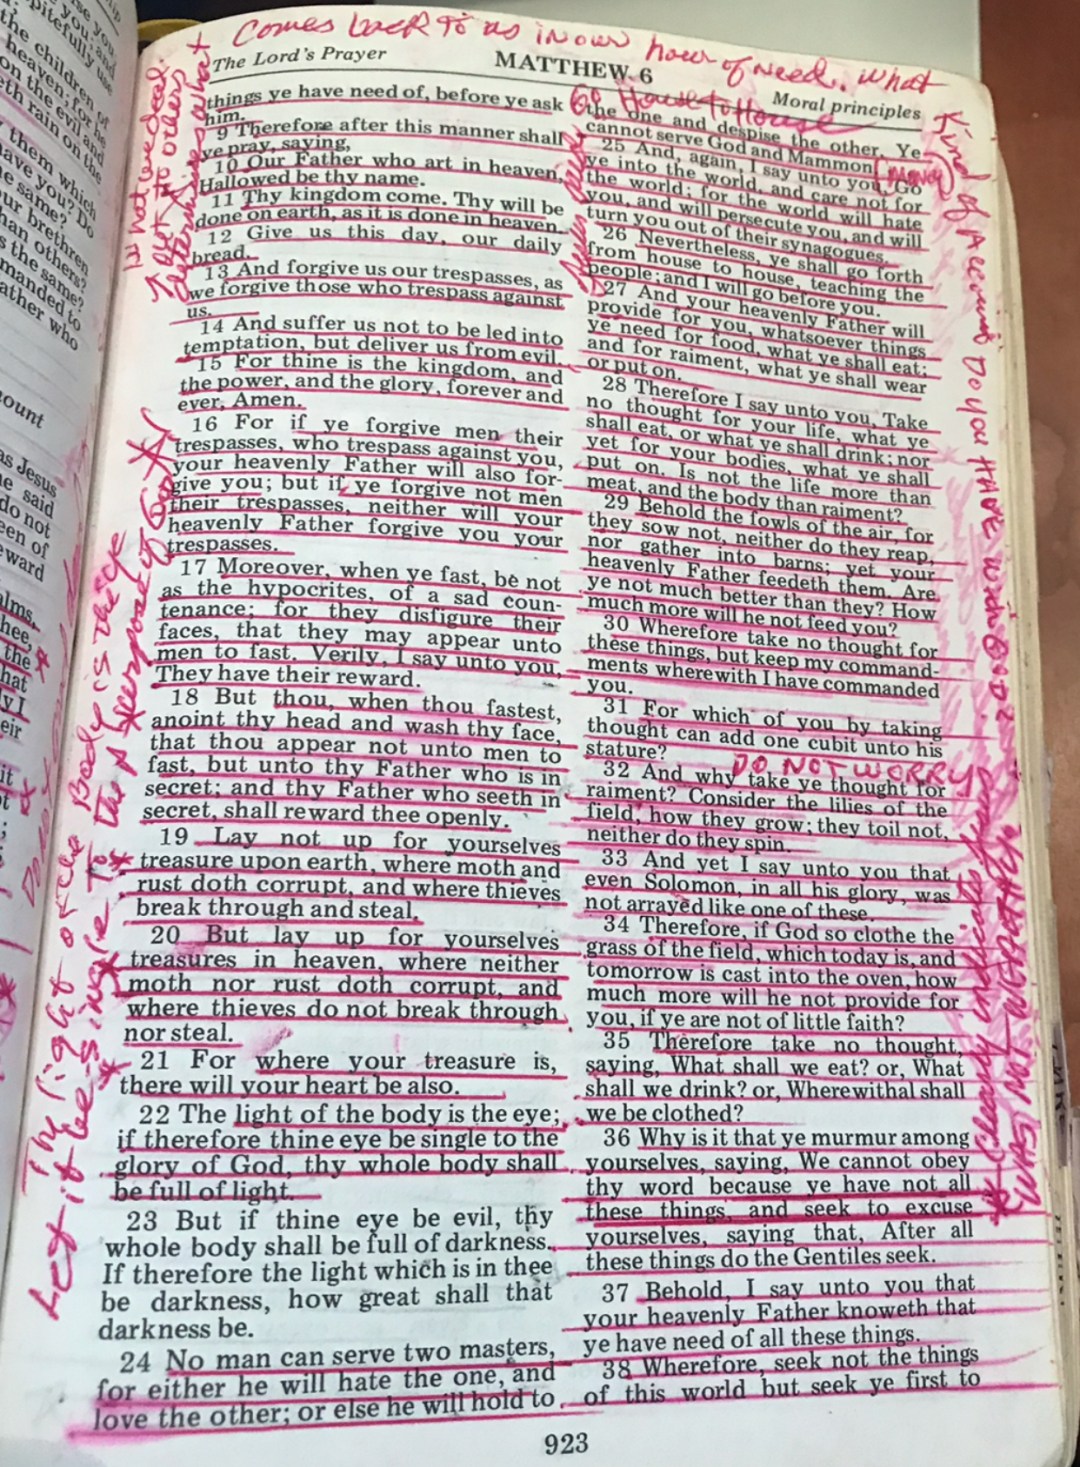 Comes back to us in our hour of need. What
Kind of Account Do you HAVE with GOD?
The Lord's Prayer
MATTHEW 6
Moral principles
things ye have need of, before ye ask
him.
9 Therefore after this manner shall
ye pray, saying,
10 Our Father who art in heaven,
Hallowed be thy name.
11 Thy kingdom come. Thy will be
done on earth, as it is done in heaven.
12 Give us this day, our daily
bread.
13 And forgive us our trespasses, as
we forgive those who trespass against
us.
14 And suffer us not to be led into
temptation, but deliver us from evil.
15 For thine is the kingdom, and
the power, and the glory, forever and
ever, Amen.
16 For if ye forgive men their
trespasses, who trespass against you,
your heavenly Father will also for-
give you; but if ye forgive not men
their trespasses, neither will your
heavenly Father forgive you your
trespasses.
17 Moreover, when ye fast, be not
as the hypocrites, of a sad coun-
tenance; for they disfigure their
faces, that they may appear unto
men to fast. Verily, I say unto you,
They have their reward.
18 But thou, when thou fastest,
anoint thy head and wash thy face,
that thou appear not unto men to
fast, but unto thy Father who is in
secret; and thy Father who seeth in
secret, shall reward thee openly.
19 Lay not up for yourselves
treasure upon earth, where moth and
rust doth corrupt, and where thieves
break through and steal.
20 But lay up for yourselves
treasures in heaven, where neither
moth nor rust doth corrupt, and
where thieves do not break through
nor steal.
21 For where your treasure is,
there will your heart be also.
22 The light of the body is the eye;
if therefore thine eye be single to the
glory of God, thy whole body shall
be full of light.
23 But if thine eye be evil, thy
whole body shall be full of darkness.
If therefore the light which is in thee
be darkness, how great shall that
darkness be.
24 No man can serve two masters,
for either he will hate the one, and
love the other; or else he will hold to
Go House to House
the one and despise the other. Ye
cannot serve God and Mammon.
(MONEY)
25 And, again, I say unto you, Go
ye into the world, and care not for
the world; for the world will hate
you, and will persecute you, and will
turn you out of their synagogues.
26 Nevertheless, ye shall go forth
from house to house, teaching the
people; and I will go before you.
27 And your heavenly Father will
provide for you, whatsoever things
ye need for food, what ye shall eat;
and for raiment, what ye shall wear
or put on.
28 Therefore I say unto you, Take
no thought for your life, what ye
shall eat, or what ye shall drink; nor
yet for your bodies, what ye shall
put on. Is not the life more than
meat, and the body than raiment?
29 Behold the fowls of the air, for
they sow not, neither do they reap,
nor gather into barns; yet your
heavenly Father feedeth them. Are
ye not much better than they? How
much more will he not feed you?
30 Wherefore take no thought for
these things, but keep my command-
ments wherewith I have commanded
you.
31 For which of you by taking
thought can add one cubit unto his
stature?
DO NOT WORRY
32 And why take ye thought for
raiment? Consider the lilies of the
field, how they grow; they toil not,
neither do they spin.
33 And yet I say unto you that
even Solomon, in all his glory, was
not arrayed like one of these.
34 Therefore, if God so clothe the
grass of the field, which today is, and
tomorrow is cast into the oven, how
much more will he not provide for
you, if ye are not of little faith?
35 Therefore take no thought,
saying, What shall we eat? or, What
shall we drink? or, Wherewithal shall
we be clothed?
36 Why is it that ye murmur among
yourselves, saying, We cannot obey
thy word because ye have not all
these things, and seek to excuse
yourselves, saying that, After all
these things do the Gentiles seek.
37 Behold, I say unto you that
your heavenly Father knoweth that
ye have need of all these things.
38 Wherefore, seek not the things
of this world but seek ye first to
923
Thy light of the Body is the eye
Let it be single To the purpose of God
WAS NOT WEALTHY